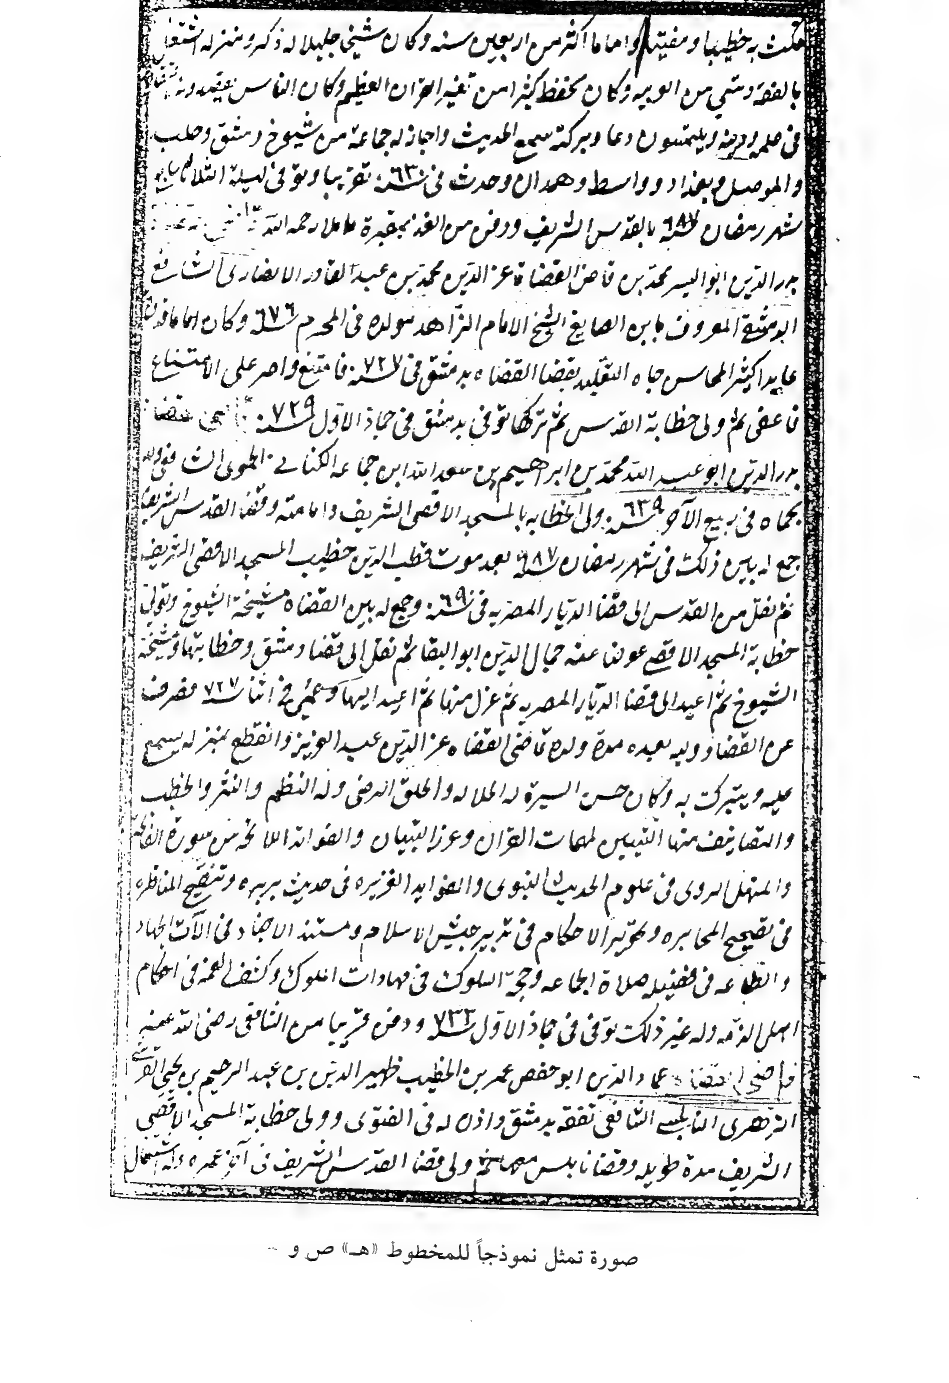 مكث به خطيبا ومفتيا واماما اكثر من اربعين سنه وكان شيخا جليلا له ذكر ومنزله اشتغل
بالفقه وشي من العربيه وكان يحفظ كثيرا من تفسير القران العظيم وكان الناس
في علمه ودينه ويلتمسون دعاه وبركته سمع الحديث واجاز له جماعة من شيوخ دمشق وحلب
والموصل وبغداد وواسط وهمدان وحدث في سنه تقريبا وتوفي ليلة الثلاثا سابع
شهر رمضان سنة ٦٨٧ بالقدس الشريف ودفن من الغد بمقبرة ماملا رحمه الله
بدر الدين ابو اليسر محمد بن قاضي القضاة عز الدين محمد بن عبد القادر الانصاري الشافعي
الدمشقي المعروف بابن الصايغ الشيخ الامام الزاهد مولده في المحرم سنة ٦٧٦ وكان اماما
عابدا كثير المحاسن جاه التقليد بقضا القضاه بدمشق في سنة ٧٢٧ فامتنع واصر على الامتناع
فاعفي ثم ولي خطابة القدس ثم تركها توفي بدمشق في جماد الاول سنة ٧٣٩
بدر الدين ابو عبد الله محمد بن ابراهيم بن سعد الله ابن جماعه الكناني الحموي الشافعي
بحماه في ربيع الآخر سنة ٦٣٩ ولي الخطابه بالمسجد الاقصى الشريف وامامته وقضا القدس الشريف
جمع له بين ذلك في شهر رمضان سنة ٦٨٧ بعد موت قطب الدين خطيب المسجد الاقصى الشريف
ثم نقل من القدس الى قضا الديار المصريه في سنة ٦٩٠ وجمع له بين القضاه مشيخة الشيوخ وتولى
خطابة المسجد الاقصى عوضا عنه جمال الدين ابو البقا ثم نقل الى قضا دمشق وخطابتها ومشيخة
الشيوخ ثم اعيد الى قضا الديار المصريه ثم عزل منها ثم اعيد اليها وعمي في اثنا سنة ٧٢٧ فصرف
عن القضا ووليه بعده مدة ولده قاضي القضاه عز الدين عبد العزيز وانقطع بمنزله يسمع
عليه ويتبرك به وكان حسن السيرة له الجلاله والخلق الرضي وله النظم والنثر والخطب
والتصانيف منها التبيان لمبهمات القران وغرر التبيان والفوائد اللائحة من سورة الفاتحة
والمنهل الروي في علوم الحديث النبوي والفوايد الغزيره في حديث بريره وتنقيح المناظره
في تصحيح المخابره وتحرير الاحكام في تدبير جيش الاسلام ومستند الاجناد في الآت الجهاد
والطاعه في فضيلة صلاة الجماعه وحجة السلوك في مهادات الملوك وكشف الغمه في احكام
اهل الذمه وله غير ذلك توفي في جماد الاول سنة ٧٣٣ ودفن قريبا من الشافعي رضي الله عنه
قاضي القضاة عماد الدين ابو حفص عمر بن الخطيب ظهير الدين بن عبد الرحيم بن يحيى القرشي
الزهري النابلسي الشافعي تفقه بدمشق واذن له في الفتوى وولي خطابة المسجد الاقصى
الشريف مدة طويله وقضا نابلس معها ثم ولي قضا القدس الشريف في آخر عمره وله اشتغال
صورة تمثل نموذجاً للمخطوط «هـ» ص و